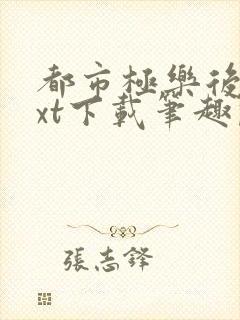 都市極樂後
xt下載筆趣
張志鋒